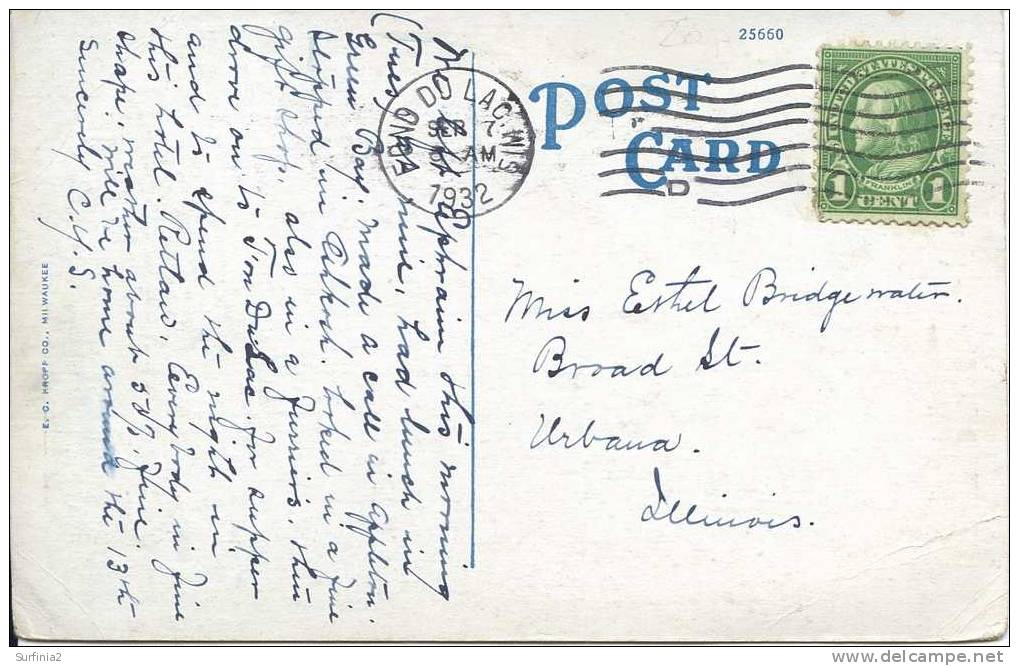 25660
POST
CARD
FOND DU LAC, WIS
SEP 7
AM
1932
UNITED STATES POSTAGE
FRANKLIN
1 CENT 1
Miss Esthel Bridgewater.
Broad St.
Urbana.
Illinois.
We left Ephraim this morning
(Tues) nine, had lunch in
Green Bay. Made a call in Appleton.
Stopped in Oshkosh. looked in a fine
gift shop, also in a furriers. then
drove on to Fon Du Lac for supper
and to spend the night in
this hotel Retlaw. Everybody in fine
shape. weather about 50%. fine.
will be home around the 13th
Sincerely C.Y.S.
E. C. KROPP CO., MILWAUKEE
Surfinia2